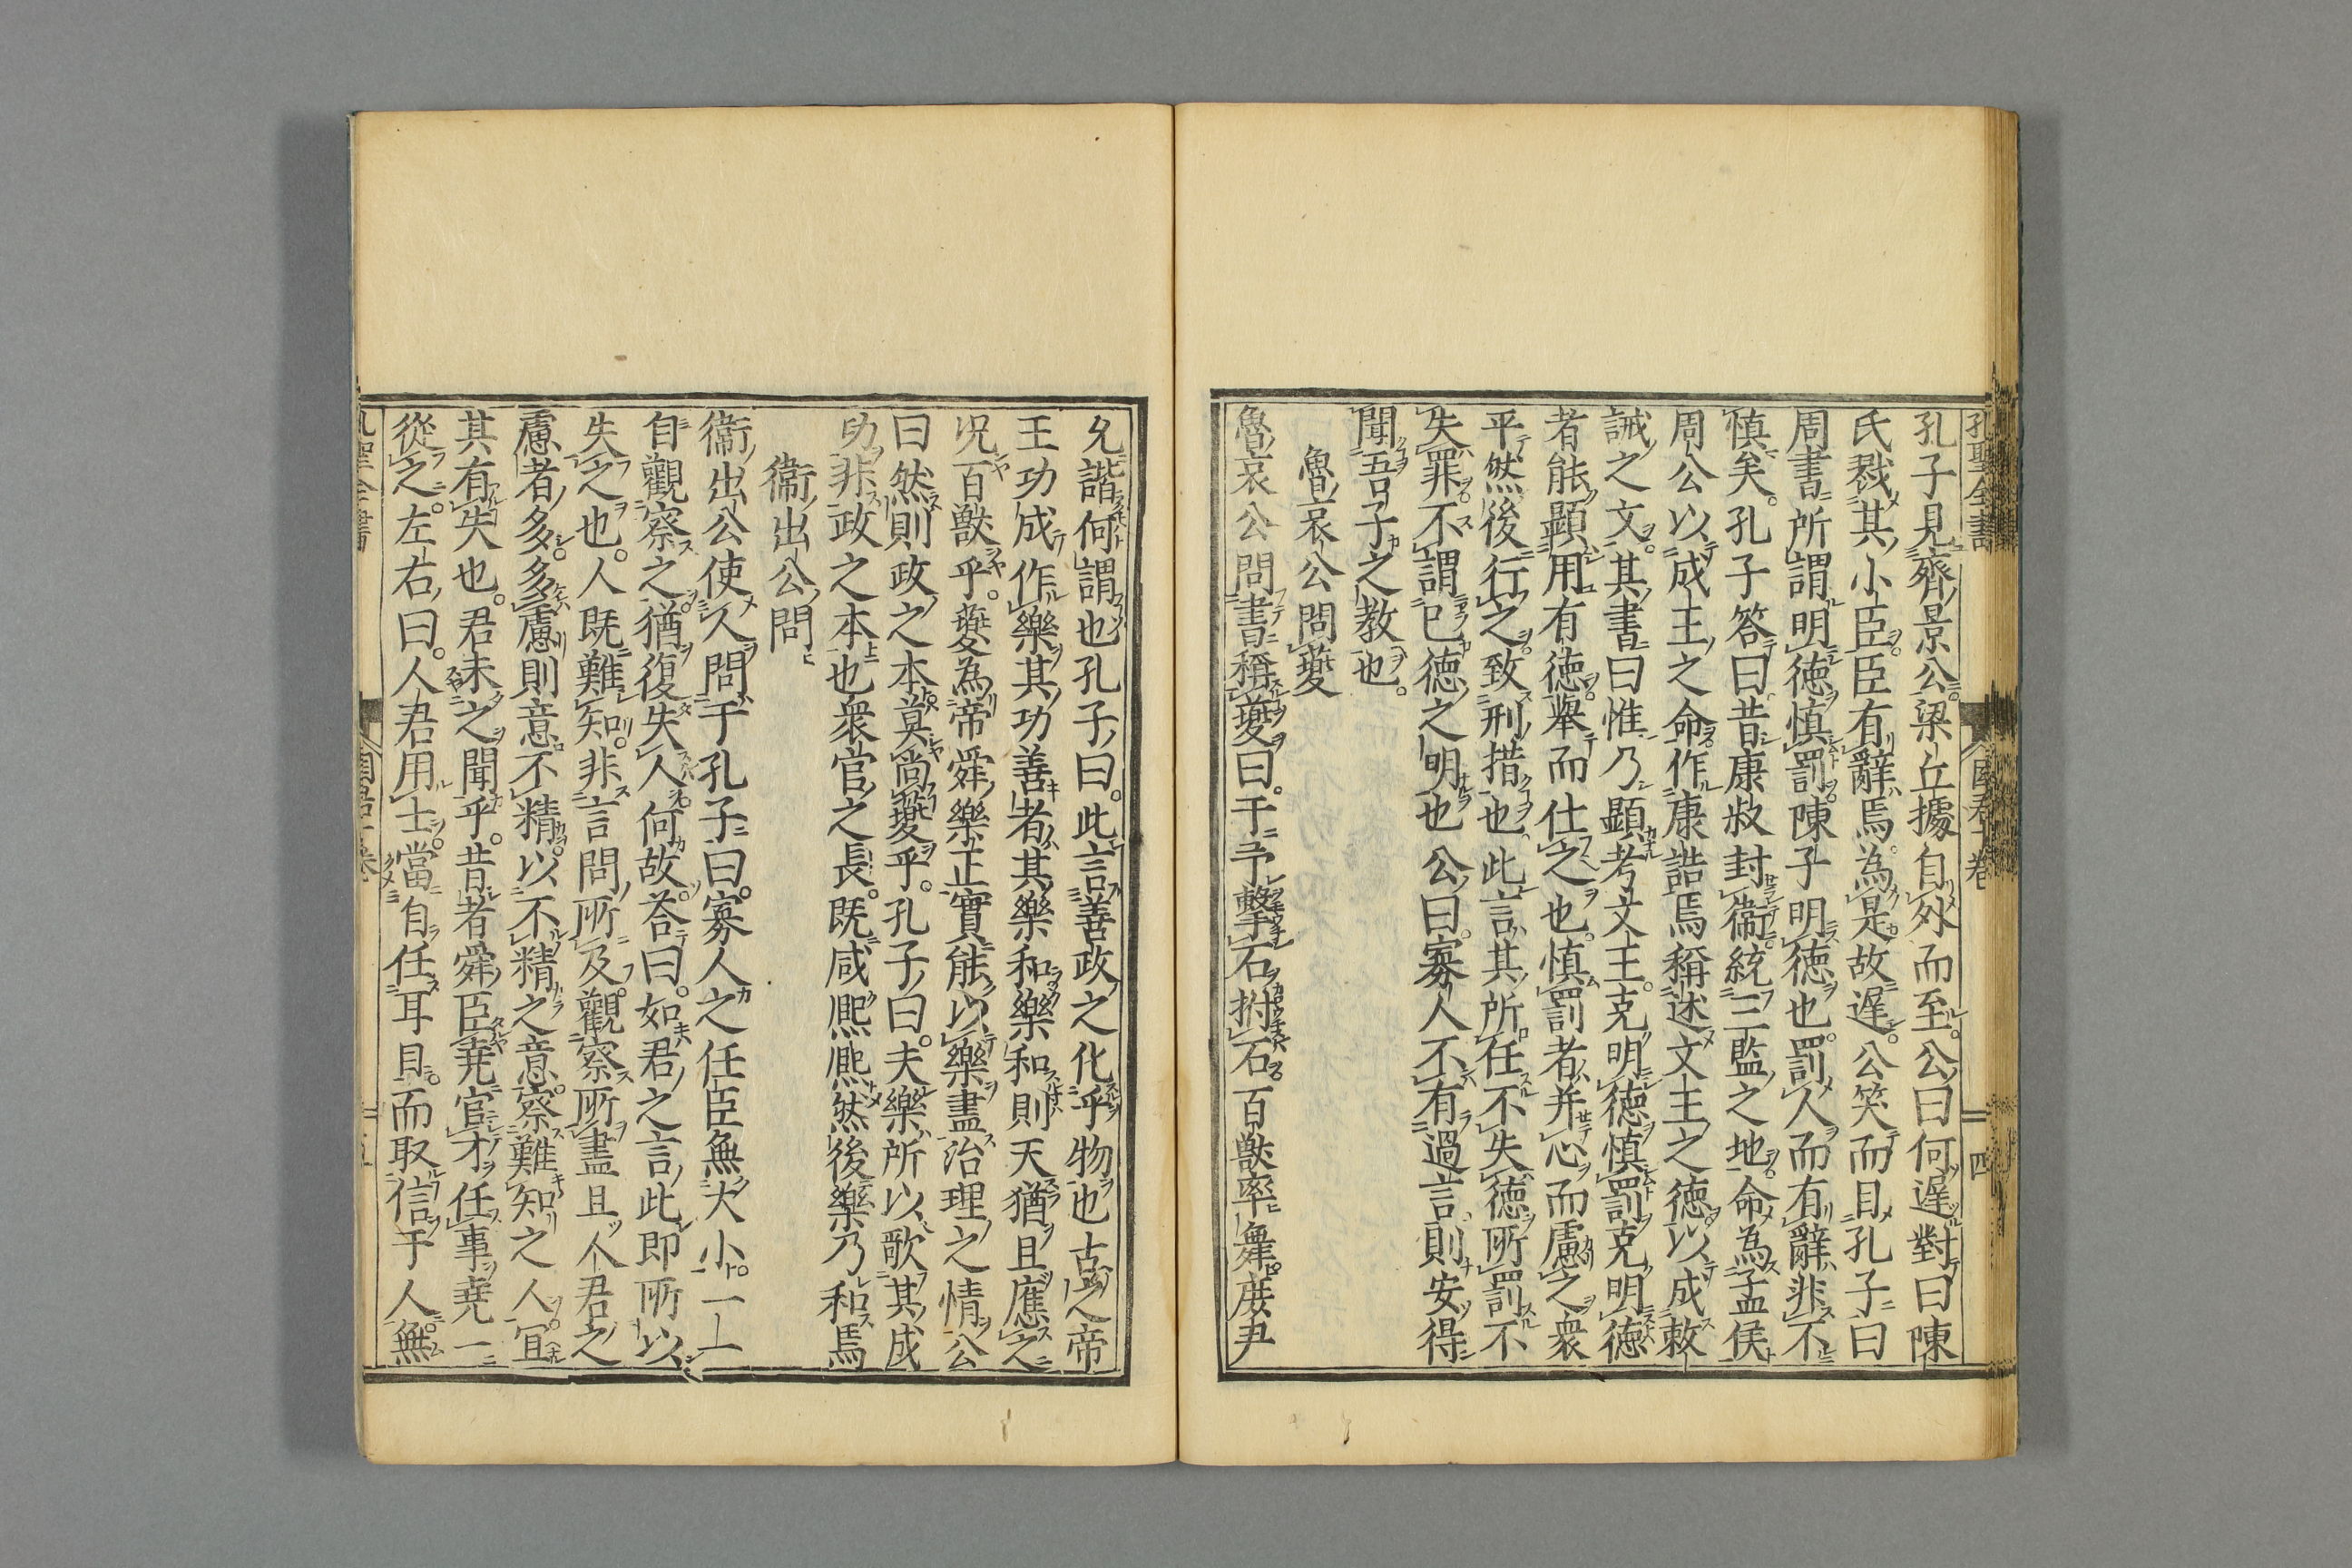 孔聖全書
四
孔子見齊景公梁丘據自外而至公曰何遲對曰陳
氏戮其小臣臣有辭焉為是故遲公笑而目孔子曰
周書所謂明徳慎罰陳子明徳也罰人而有辭非不
慎矣孔子答曰昔康叔封衛統三監之地命為孟侯
周公以成王之命作康誥焉稱述文王之徳以成敕
誡之文其書曰惟乃顯考文王克明徳慎罰克明徳
者能顯用有徳舉而仕之也慎罰者并心而慮之衆
平然後行之致刑措也此言其所任不失徳所罰不
失罪不謂已徳之明也公曰寡人不有過言則安得
聞吾子之教也
魯哀公問夔
魯哀公問書稱夔曰於予擊石拊石百獸率舞庶尹
允諧何謂也孔子曰此言善政之化乎物也古人帝
王功成作樂其功善者其樂和樂和則天猶且應之
况百獸乎夔為帝舜樂正實能以樂盡治理之情公
曰然則政之本莫尚夔乎孔子曰夫樂所以歌其成
功非政之本也衆官之長既咸熈熈然後樂乃和焉
衞出公問
衞出公使人問于孔子曰寡人之任臣無大小一一
自觀察之猶復失人何故荅曰如君之言此即所以
失之也人既難知非言問所及觀察所盡且人君之
慮者多多慮則意不精以不精之意察難知之人宜
其有失也君未之聞乎昔者舜臣堯官才任事堯一
從之左右曰人君用士當自任耳目而取信于人無